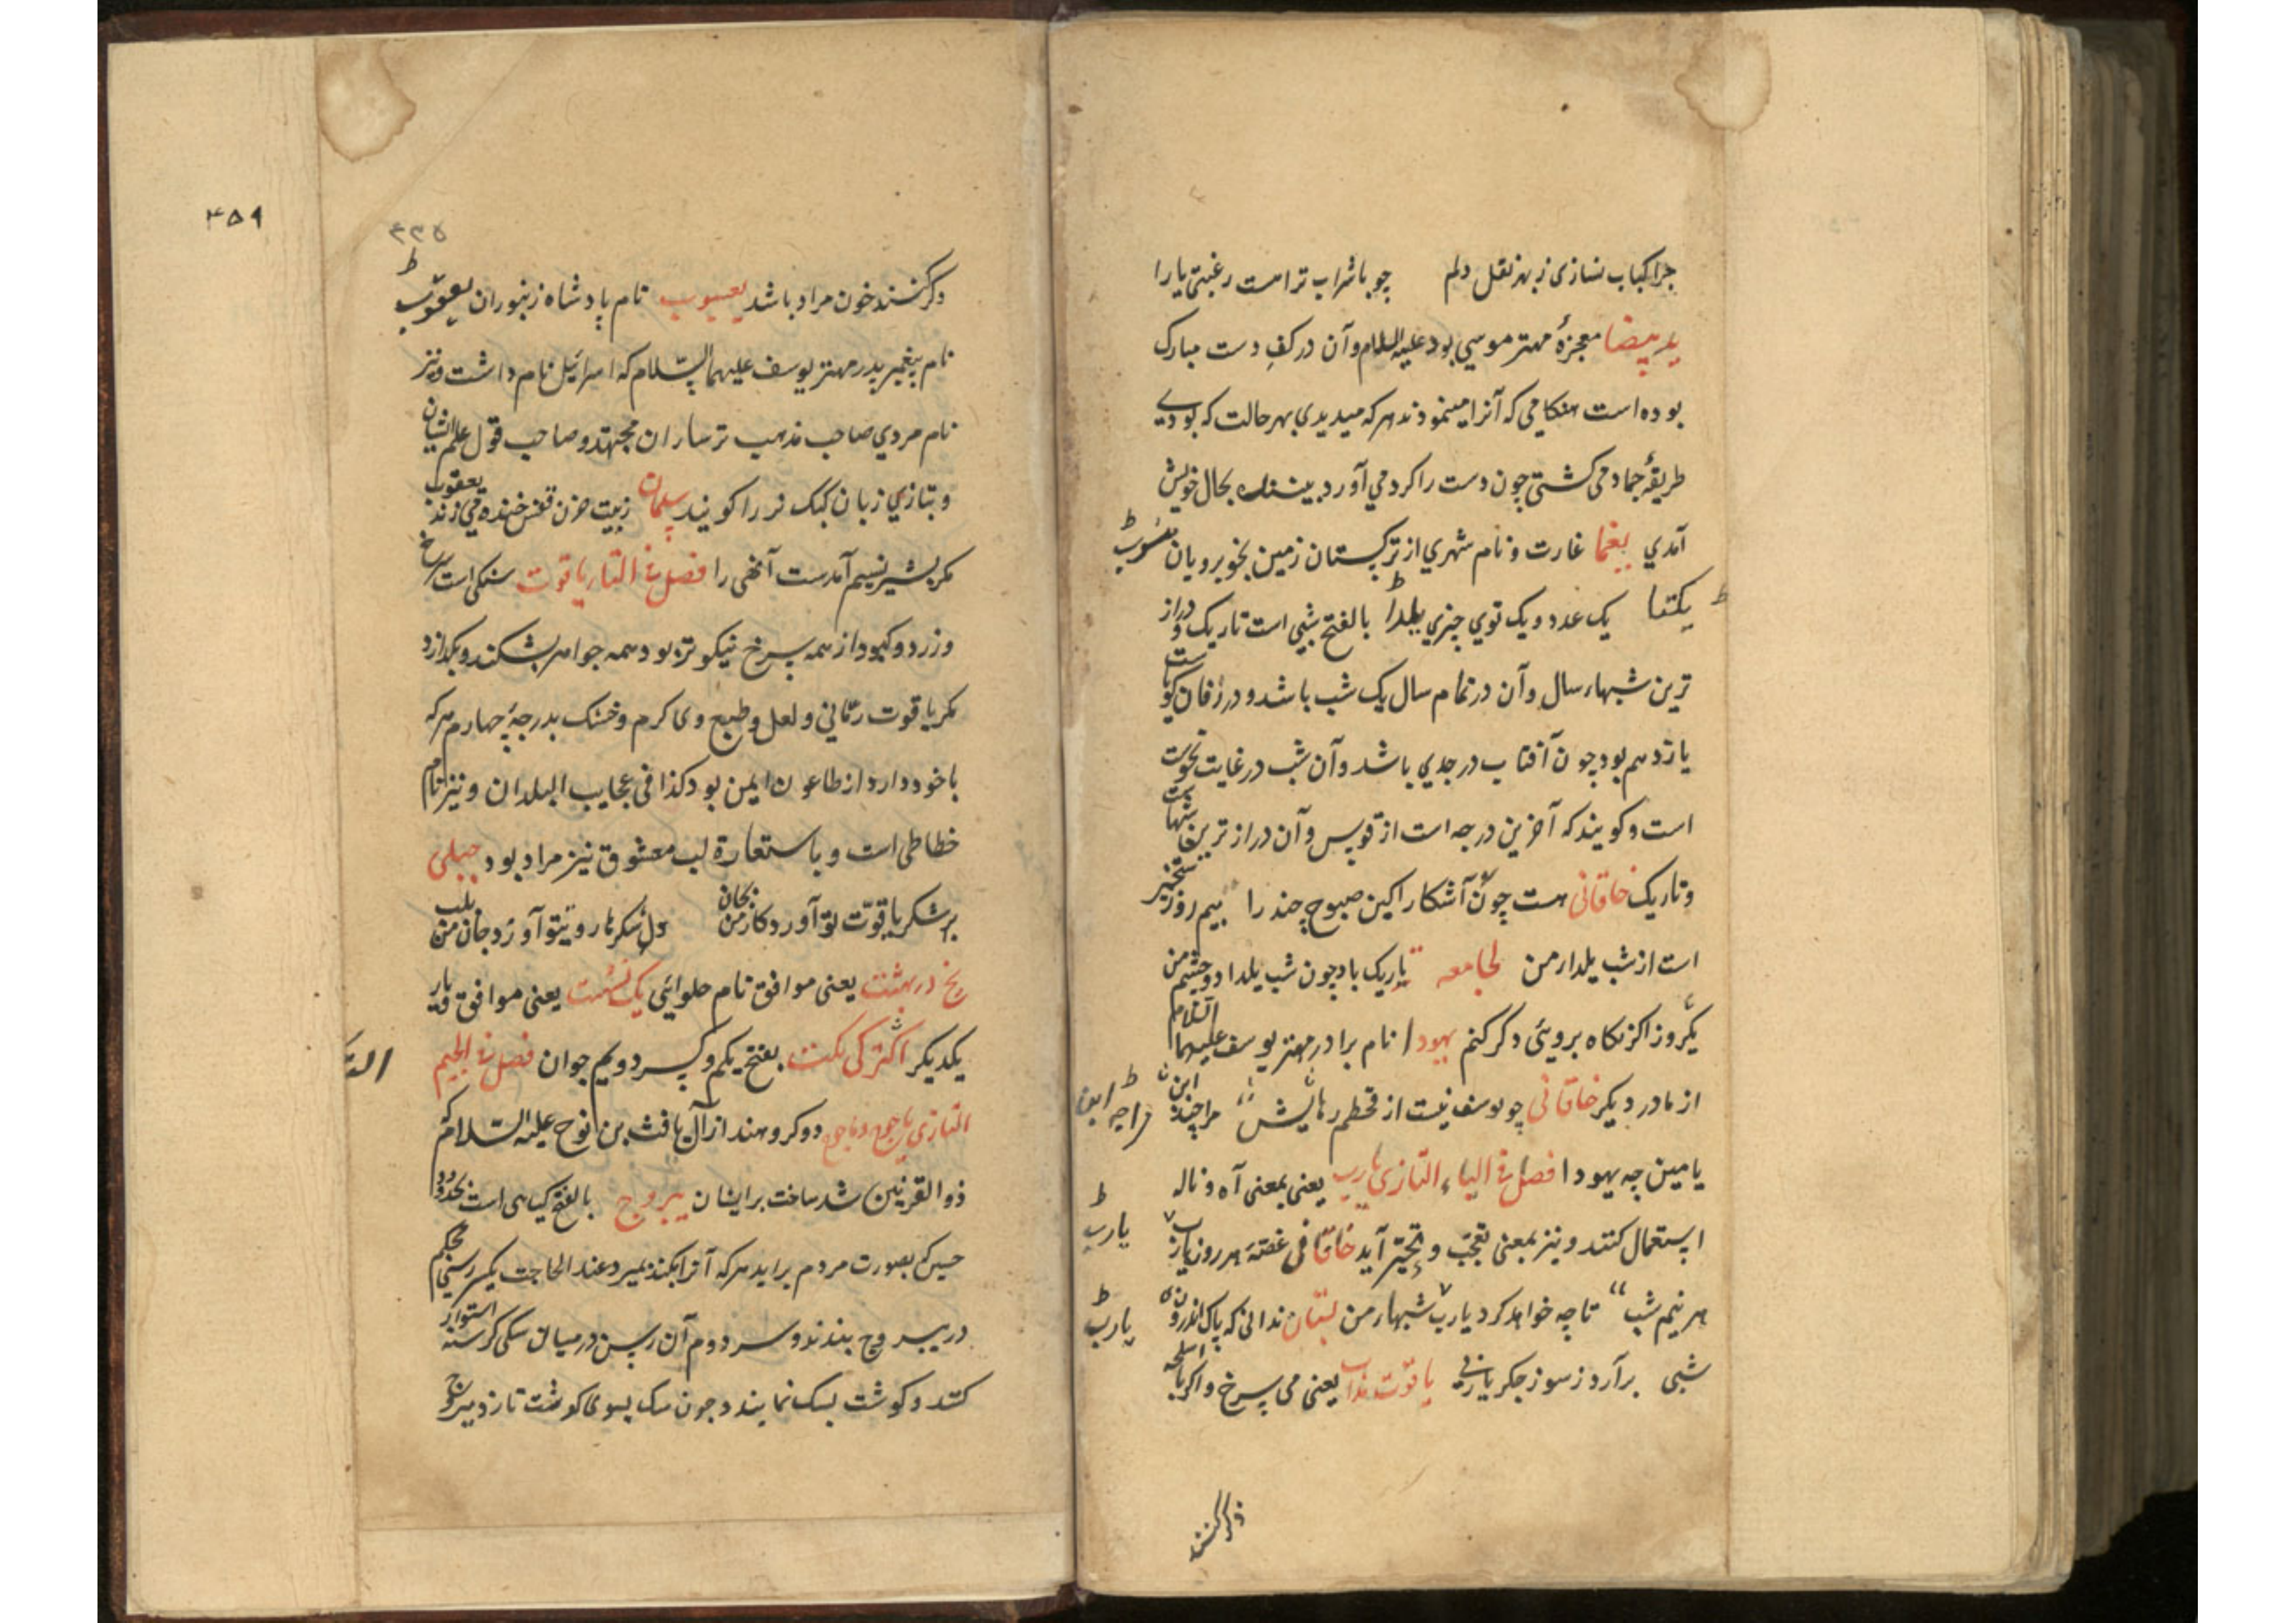 چرا کباب نسازی ز بهر نقل دلم چو با شراب ترا هست رغبتی یارا
ید بیضا معجزهٔ مهتر موسی بود علیه السلام و آن در کفِ دست مبارک
بوده است هنکامی که آنرا مینمودند هر که میدیدی بهر حالت که بودی
طریقهٔ جماد می کشتی چون دست را کرد می آورد بیننده بحال خویش
آمدی یغما غارت و نام شهری از ترکستان زمین بخوبرویان منسوب
یکتا یک عدد و یک توی چیزی یلدا بالفتح شبی است تاریک و دراز
ترین شبهاء سال و آن در تمام سال یک شب باشد و در
یازدهم بود چون آفتاب در جدی باشد و آن شب در غایت نحوست
است و کویند که آخرین درجه است از قوس و آن درازترین شبهاست
و تاریک خاقانی هست چون آشکارا کین صبوح چند را بیم روز رستخیز
است از شب یلدار من لجامعه تاریک باد چون شب یلدا دو چشم من
یکروز اکر نکاه برویی دکر کنم یهودا نام برادر مهتر یوسف علیهما السلام
از مادر دیکر خاقانی چو یوسف نیست از قحطم رهایش مرا چه ابن
یامین چه یهودا فصل فی الیاء التازی یارب یعنی بمعنی آه و ناله
استعمال کنند و نیز بمعنی تعجب و تحیر آید خاقانی غصّهٔ هر روز یارب
هر نیم شب تا چه خواهد کرد یارب شبهار من ندانی که پاک اندرون
شبی برآرد ز سوز جکر یاربی یاقوت مذاب یعنی می سرخ و اکر با اسلحه
یارب
یارب
ذکر کنند
۴۵۹
۴۳۵
ذکر کنند خون مراد باشد یعسوب نام پادشاه زنبوران یعقوب
نام پیغمبر پدر مهتر یوسف علیهما السّلام که اسرائیل نام داشت و نیز
نام مردی صاحب مذهب ترسایان مجتهد و صاحب قول
و بتازی زبان کبک نر را کویند سلمان ز بیت حزن قفس خنده می زند یعقوب
مکر بشیر نسیم آمدست آنهی را فصل فی التا یاقوت سنکی است سرخ
و زرد و کبود از همه سرخ نیکوتر بود همه جواهر بشکند و بکدازد
مکر یاقوت رمّانی و لعل و طبع وی کرم و خشک بدرجهٔ چهارم هر که
با خود دارد از طاعون ایمن بود کذا فی عجایب البلدان و نیز نام
خطاطی است و باستعارة لب معشوق نیز مراد بود جبلی
بر شکر یاقوت تو آورد کار من بجان دل شکر هاروت تو آورد جان من بلب
یخ در بهشت یعنی موافق نام حلوائی یک نشست یعنی موافق و یار
یکدیکر التُرکی یکت بفتح یکم و کسر دویم جوان فصل فی الجیم
التازی یاجوج و ماجوج دو کروهند از آل یافث بن نوح علیه السّلام که
ذوالقرنین سد ساخت بر ایشان یبروج بالفتح کیاهی است
بصورت مردم برآید هر که آنرا بکند بمیرد عند الحاجت یکسر رسنی محکم
در یبروج بندند و سر دوم آن رسن در میان سکی کرسنه استوار
کنند و کوشت بسک نمایند و چون سک بسوی کوشت تازد یبروج